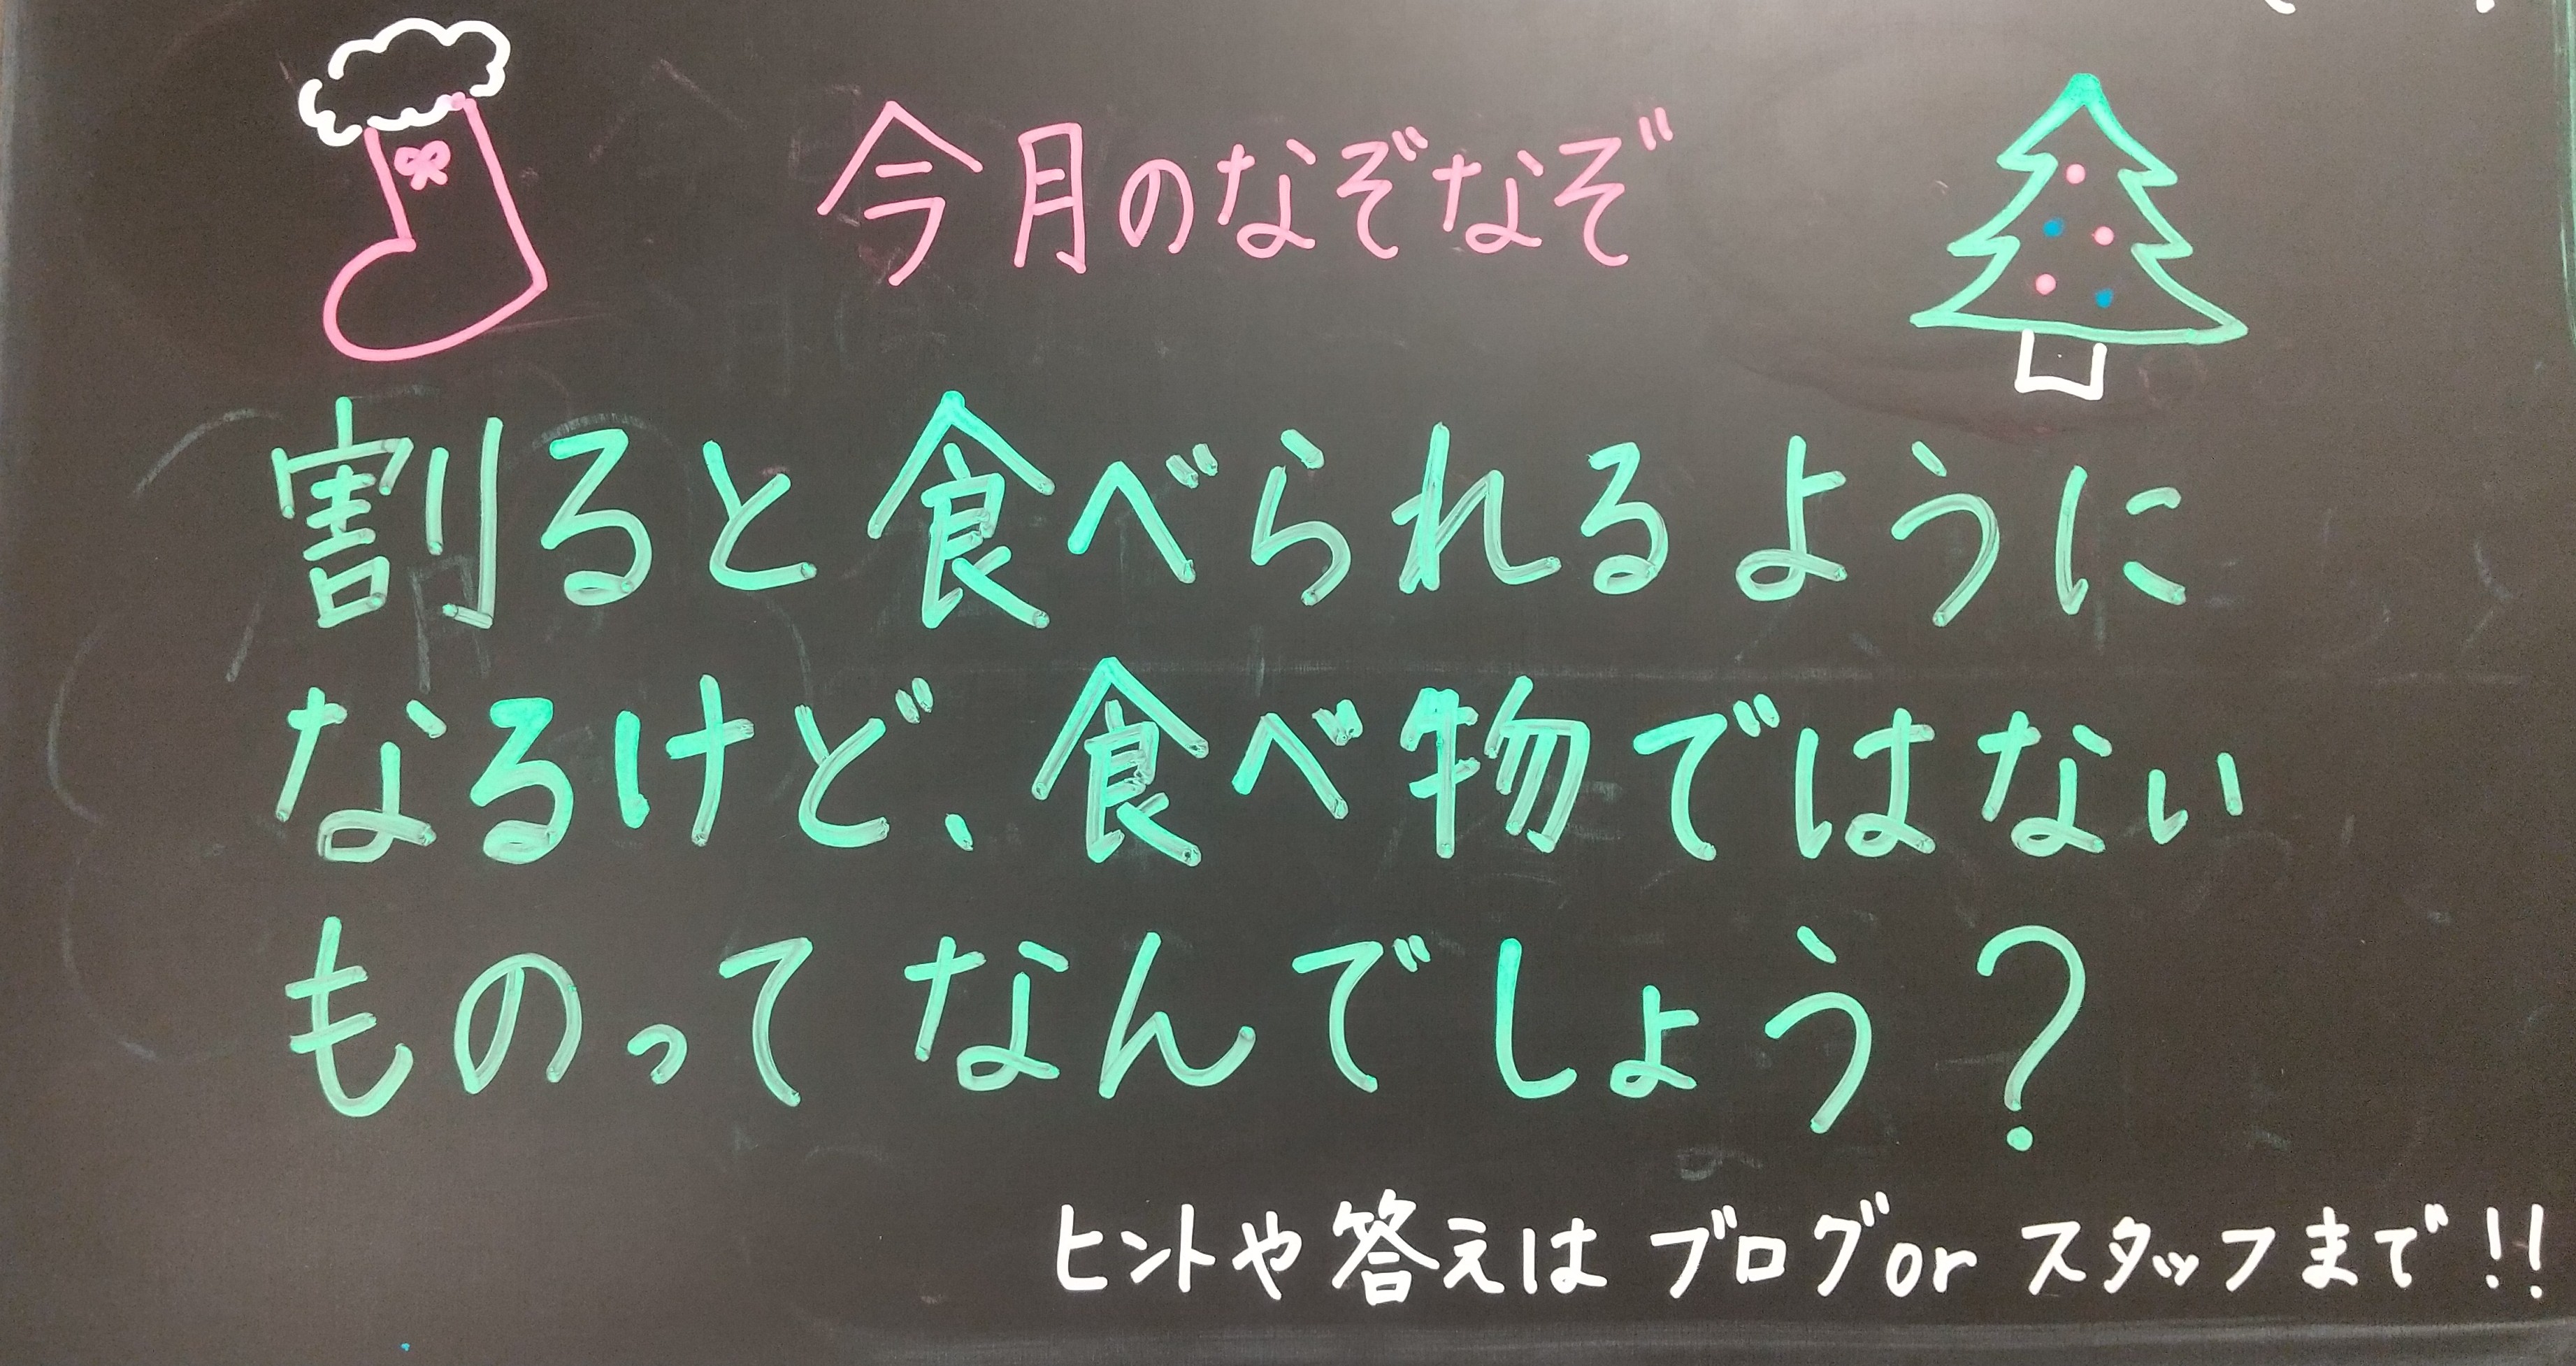 今月のなぞなぞ
割ると食べられるように
なるけど、食べ物ではない
ものってなんでしょう？
ヒントや答えはブログorスタッフまで!!